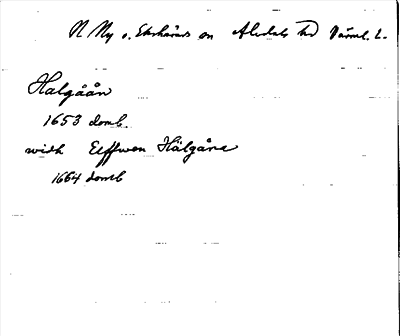 N Ny o. Ekshärads sn Älvdals hd Värml. L.
Halgåån
1653 domb.
widh Elffwen Hälgåne
1664 domb